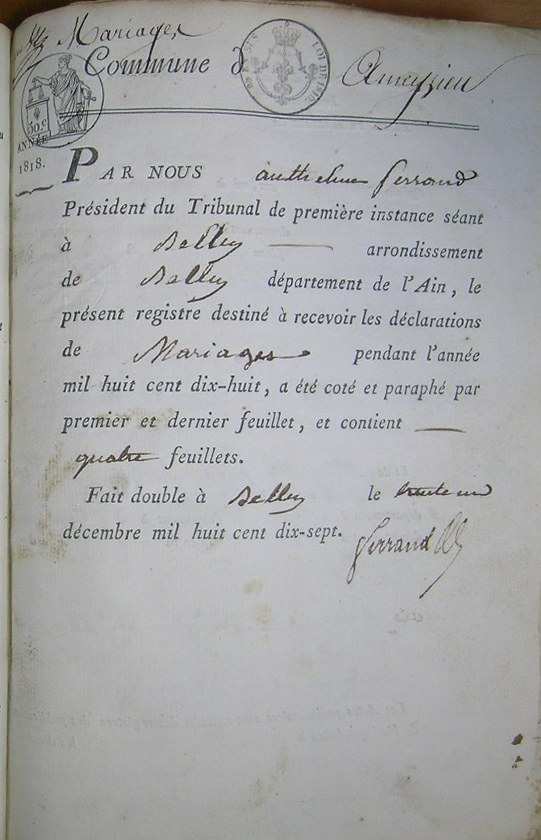 Mariages
Commune d'Ameyzieu
50c.
ANNÉE
1818.
PAR NOUS anthelme ferrand
Président du Tribunal de première instance séant
à Belley arrondissement
de Belley département de l'Ain, le
présent registre destiné à recevoir les déclarations
de Mariages pendant l'année
mil huit cent dix-huit, a été coté et paraphé par
premier et dernier feuillet, et contient
quatre feuillets.
Fait double à Belley le trente un
décembre mil huit cent dix-sept.
ferrand